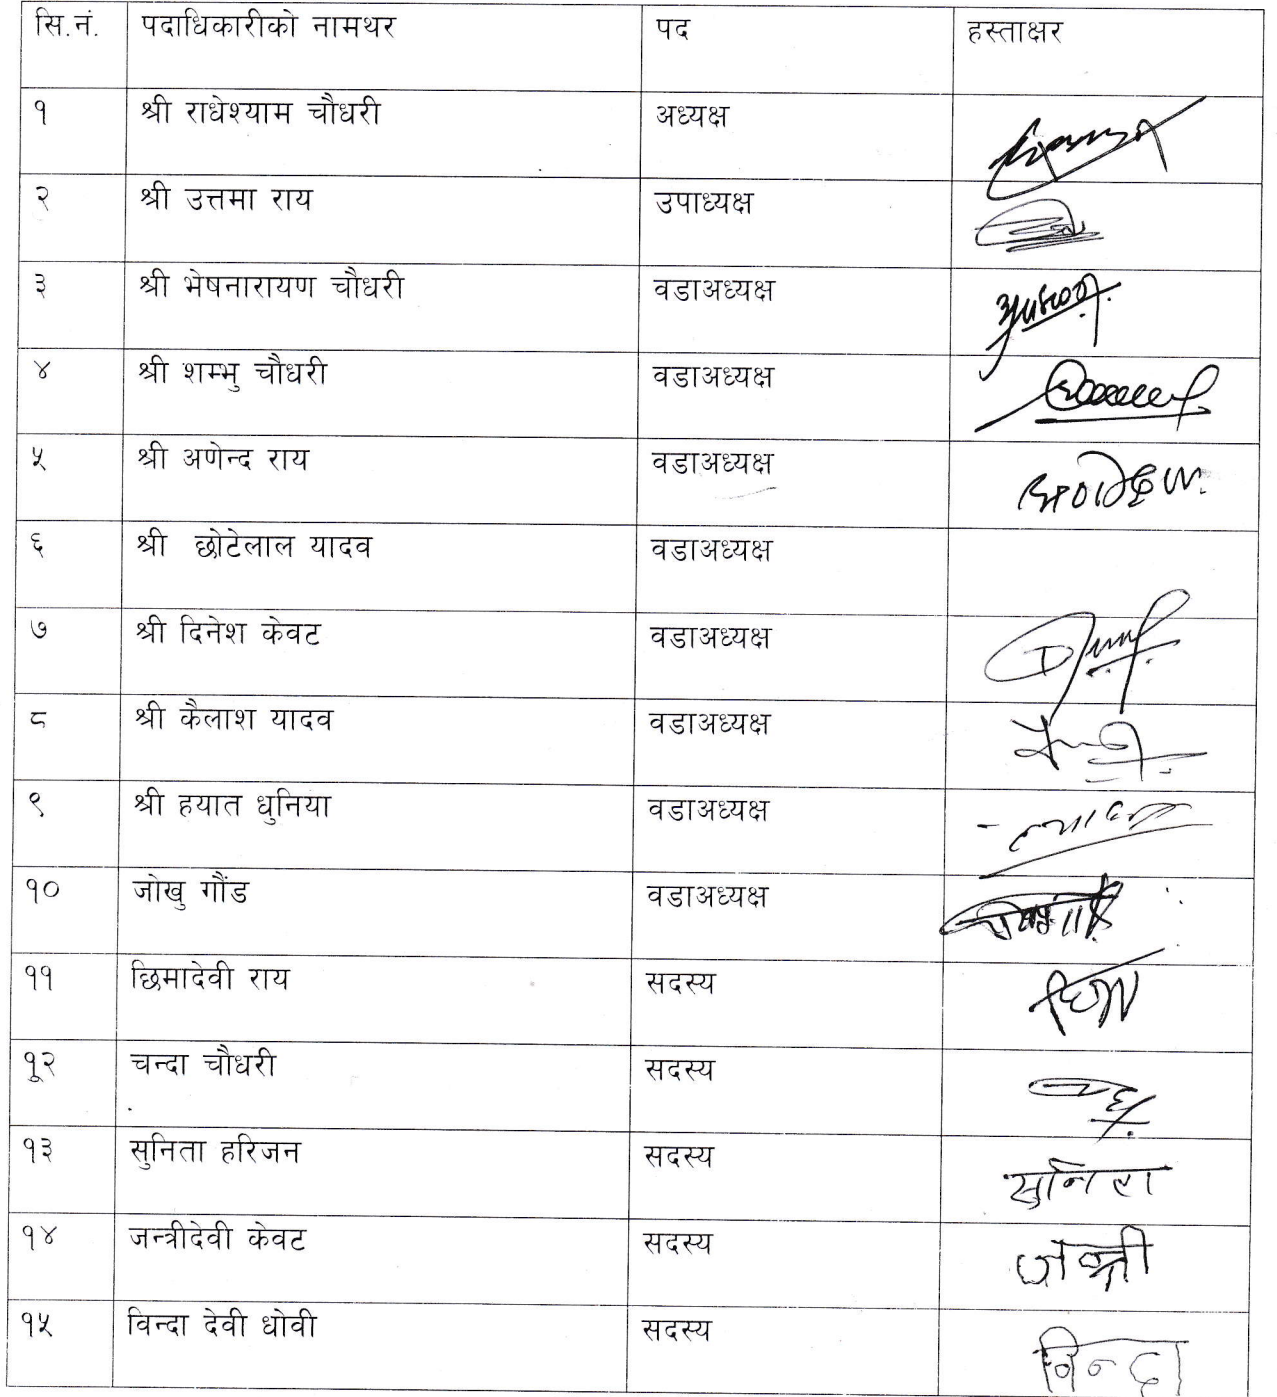 सि.नं. पदाधिकारीको नामथर पद हस्ताक्षर
१ श्री राधेश्याम चौधरी अध्यक्ष
२ श्री उत्तमा राय उपाध्यक्ष
३ श्री भेषनारायण चौधरी वडाअध्यक्ष
४ श्री शम्भु चौधरी वडाअध्यक्ष
५ श्री अणेन्द राय वडाअध्यक्ष
६ श्री छोटेलाल यादव वडाअध्यक्ष
७ श्री दिनेश केवट वडाअध्यक्ष
८ श्री कैलाश यादव वडाअध्यक्ष
९ श्री हयात धुनिया वडाअध्यक्ष
१० जोखु गौंड वडाअध्यक्ष
११ छिमादेवी राय सदस्य
१२ चन्दा चौधरी सदस्य
१३ सुनिता हरिजन सदस्य सुनिता
१४ जन्त्रीदेवी केवट सदस्य जन्त्री
१५ विन्दा देवी धोवी सदस्य विन्दा